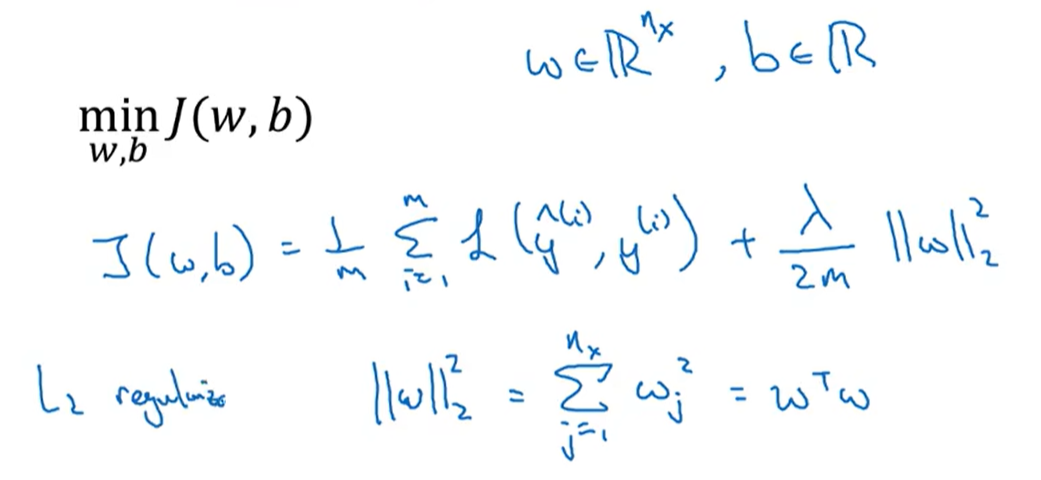 w ∈ ℝ^{n_x}, b ∈ ℝ
min_{w,b} J(w, b)
J(w,b) = \frac{1}{m} \sum_{i=1}^{m} ℒ(ŷ^{(i)}, y^{(i)}) + \frac{λ}{2m} ||w||_2^2
L_2 regulariz ||w||_2^2 = \sum_{j=1}^{n_x} w_j^2 = w^T w